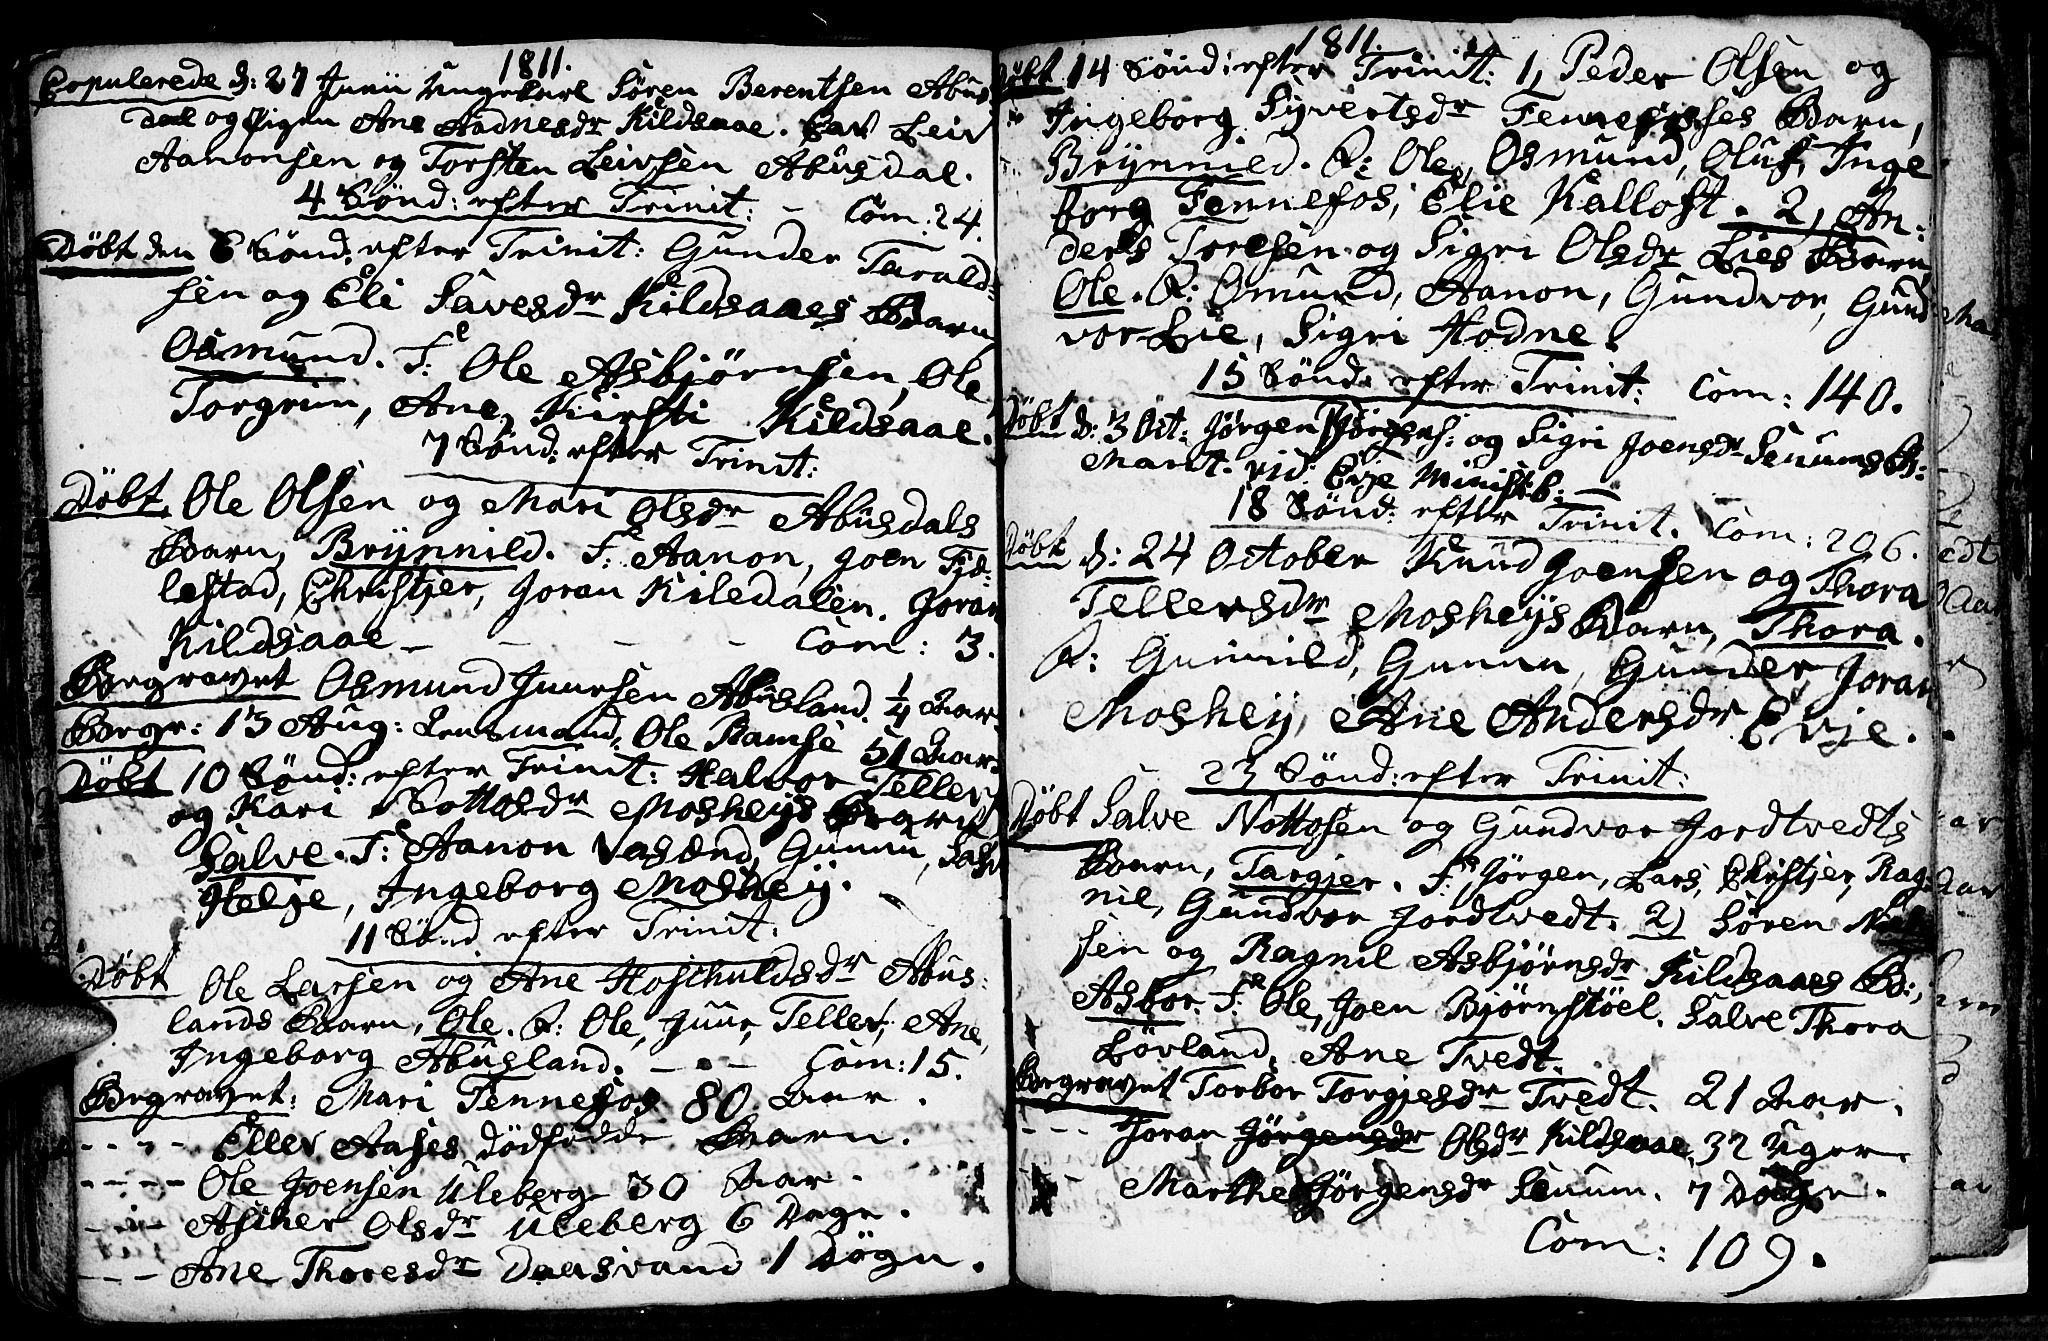 1811.
Copulerede d: 27 Junii Ungekarl Søren Berentsen Abus
dal og Pigen Ane Aadnesdr Kildsaae. Cav Leiv
Aanonsen og Torsten Leivsen Abusdal.
4 Sønd: efter Trinit: - Com: 24.
Døbt den 6 Sønd: efter Trinit: Gunder Tarald-
sen og Eli Savesdr Kildsaaes Barn
Osmund. F: Ole Asbjørnsen, Ole
Torgrim, Ane, Kirsti Kildsaae.
7 Sønd: efter Trinit:
Døbt. Ole Olsen og Mari Olsdr Abusdals
Barn, Brÿnnild. F: Aanon, Joen Fjæ-
lestad, Christjer, Joran Kiledalen. Joran
Kildsaae - - - - Com: 3.
Begravet Osmund Juursen Abusland. 1/4 Aar
Begr: 13 Aug: Lensmand, Ole Ramse 51 Aar
Døbt 10 Sønd: efter Trinit: Halvor Tellefs
og Kari Nottosdr Mosheijs Barn
Salve. F: Aanon Vasænd, Gunnu, Salve
Helje, Ingeborg Mosheij.
11 Sønd efter Trinit:
Døbt Ole Larsen og Ane Hoschuldsdr Abus-
lands Barn, Ole. F: Ole, Juur, Tellef, Ane,
Ingeborg Abusland. - - - Com: 15.
Begravet: Mari Fennefos 80 Aar.
- - - - Ellev Aases dödfødde Barn.
- - - - Ole Joensen Uleberg 30 Aar.
- - - Asiher Olsdr Uleberg 6 Dage.
- - - Ane Thoresdr Daasvand 1 Døgn.
1811.
Døbt 14 Sönd: efter Trinit: 1, Peder Olsen og
Ingeborg Syvertsdr Fennefosses Barn,
Brÿnnild. F: Ole, Osmund, Oluf, Inge
borg Fennefos, Elie Kalloft. 2, An-
ders Toresen og Sigri Olsdr Lies Barn,
Ole. F: Osmund, Aanon, Gundvor, Gund
vor Lie, Sigri Hodne.
15 Sønd: efter Trinit: Com: 140.
Døbt d: 3 Oct: Jørgen Jørgens: og Sigri Joensdr Senums B:
Mart. vid: Evje Ministb: -
18 Sønd: efter Trinit. Com: 206.
Døbt d: 24 October Knud Joensen og Thora
Tellefsdr Mosheijs Barn, Thora.
F: Gunnild, Gunnu, Gunder, Joran
Moshey, Ane Andersdr Evje.
23 Sønd: efter Trinit:
Døbt Salve Nottosen og Gundvor Jordtvedts
Barn, Targjer. F: Jørgen, Lars, Christjer, Rag-
nil, Gundvor Jordtvedt. 2) Søren
sen og Ragnil Asbjørnsdr Kildsaaes B:,
Asbor. F: Ole, Joen Bjørnstöel. Salve Thora
Lövland, Ane Tvedt.
Begravet Torbor Torgjesdr Tvedt. 21 Aar.
- - - Joran Jørgensdr Olsdr Kildsaae. 32 Uger.
- Marthe Jörgensdr Senum. 7 Dage.
Com: 109.